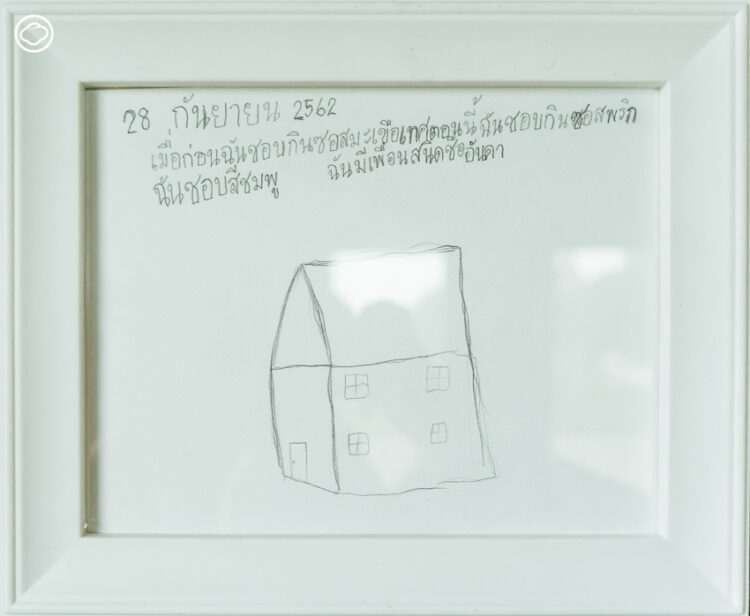 28 กันยายน 2562
เมื่อก่อนฉันชอบกินซอสมะเขือเทศตอนนี้ฉันชอบกินซอสพริก
ฉันชอบสีชมพู ฉันมีเพื่อนสนิดชื่ออันดา